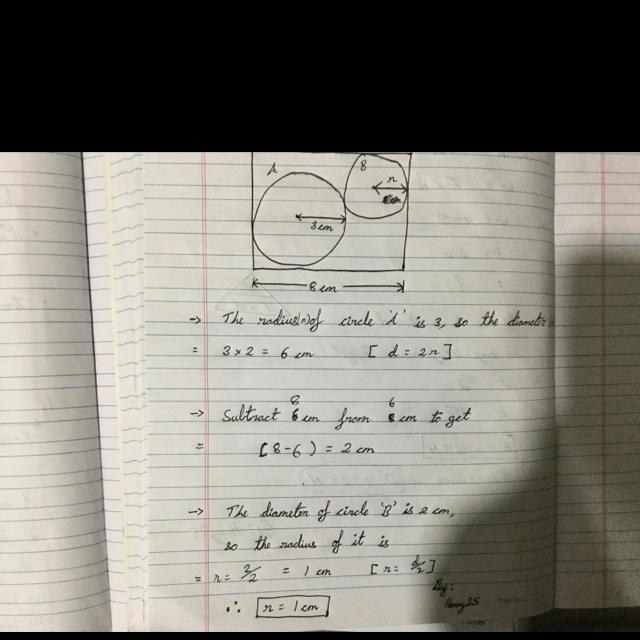 A
B
r
cm
3 cm
8 cm
→ The radius(r) of circle 'A' is 3, so the diameter
= 3 × 2 = 6 cm [ d = 2r ]
8 6
→ Subtract 6 cm from 8 cm to get
= (8-6) = 2 cm
→ The diameter of circle 'B' is 2 cm,
so the radius of it is
= r = 2/2 = 1 cm [ r = d/2 ]
By:
∴ r = 1 cm